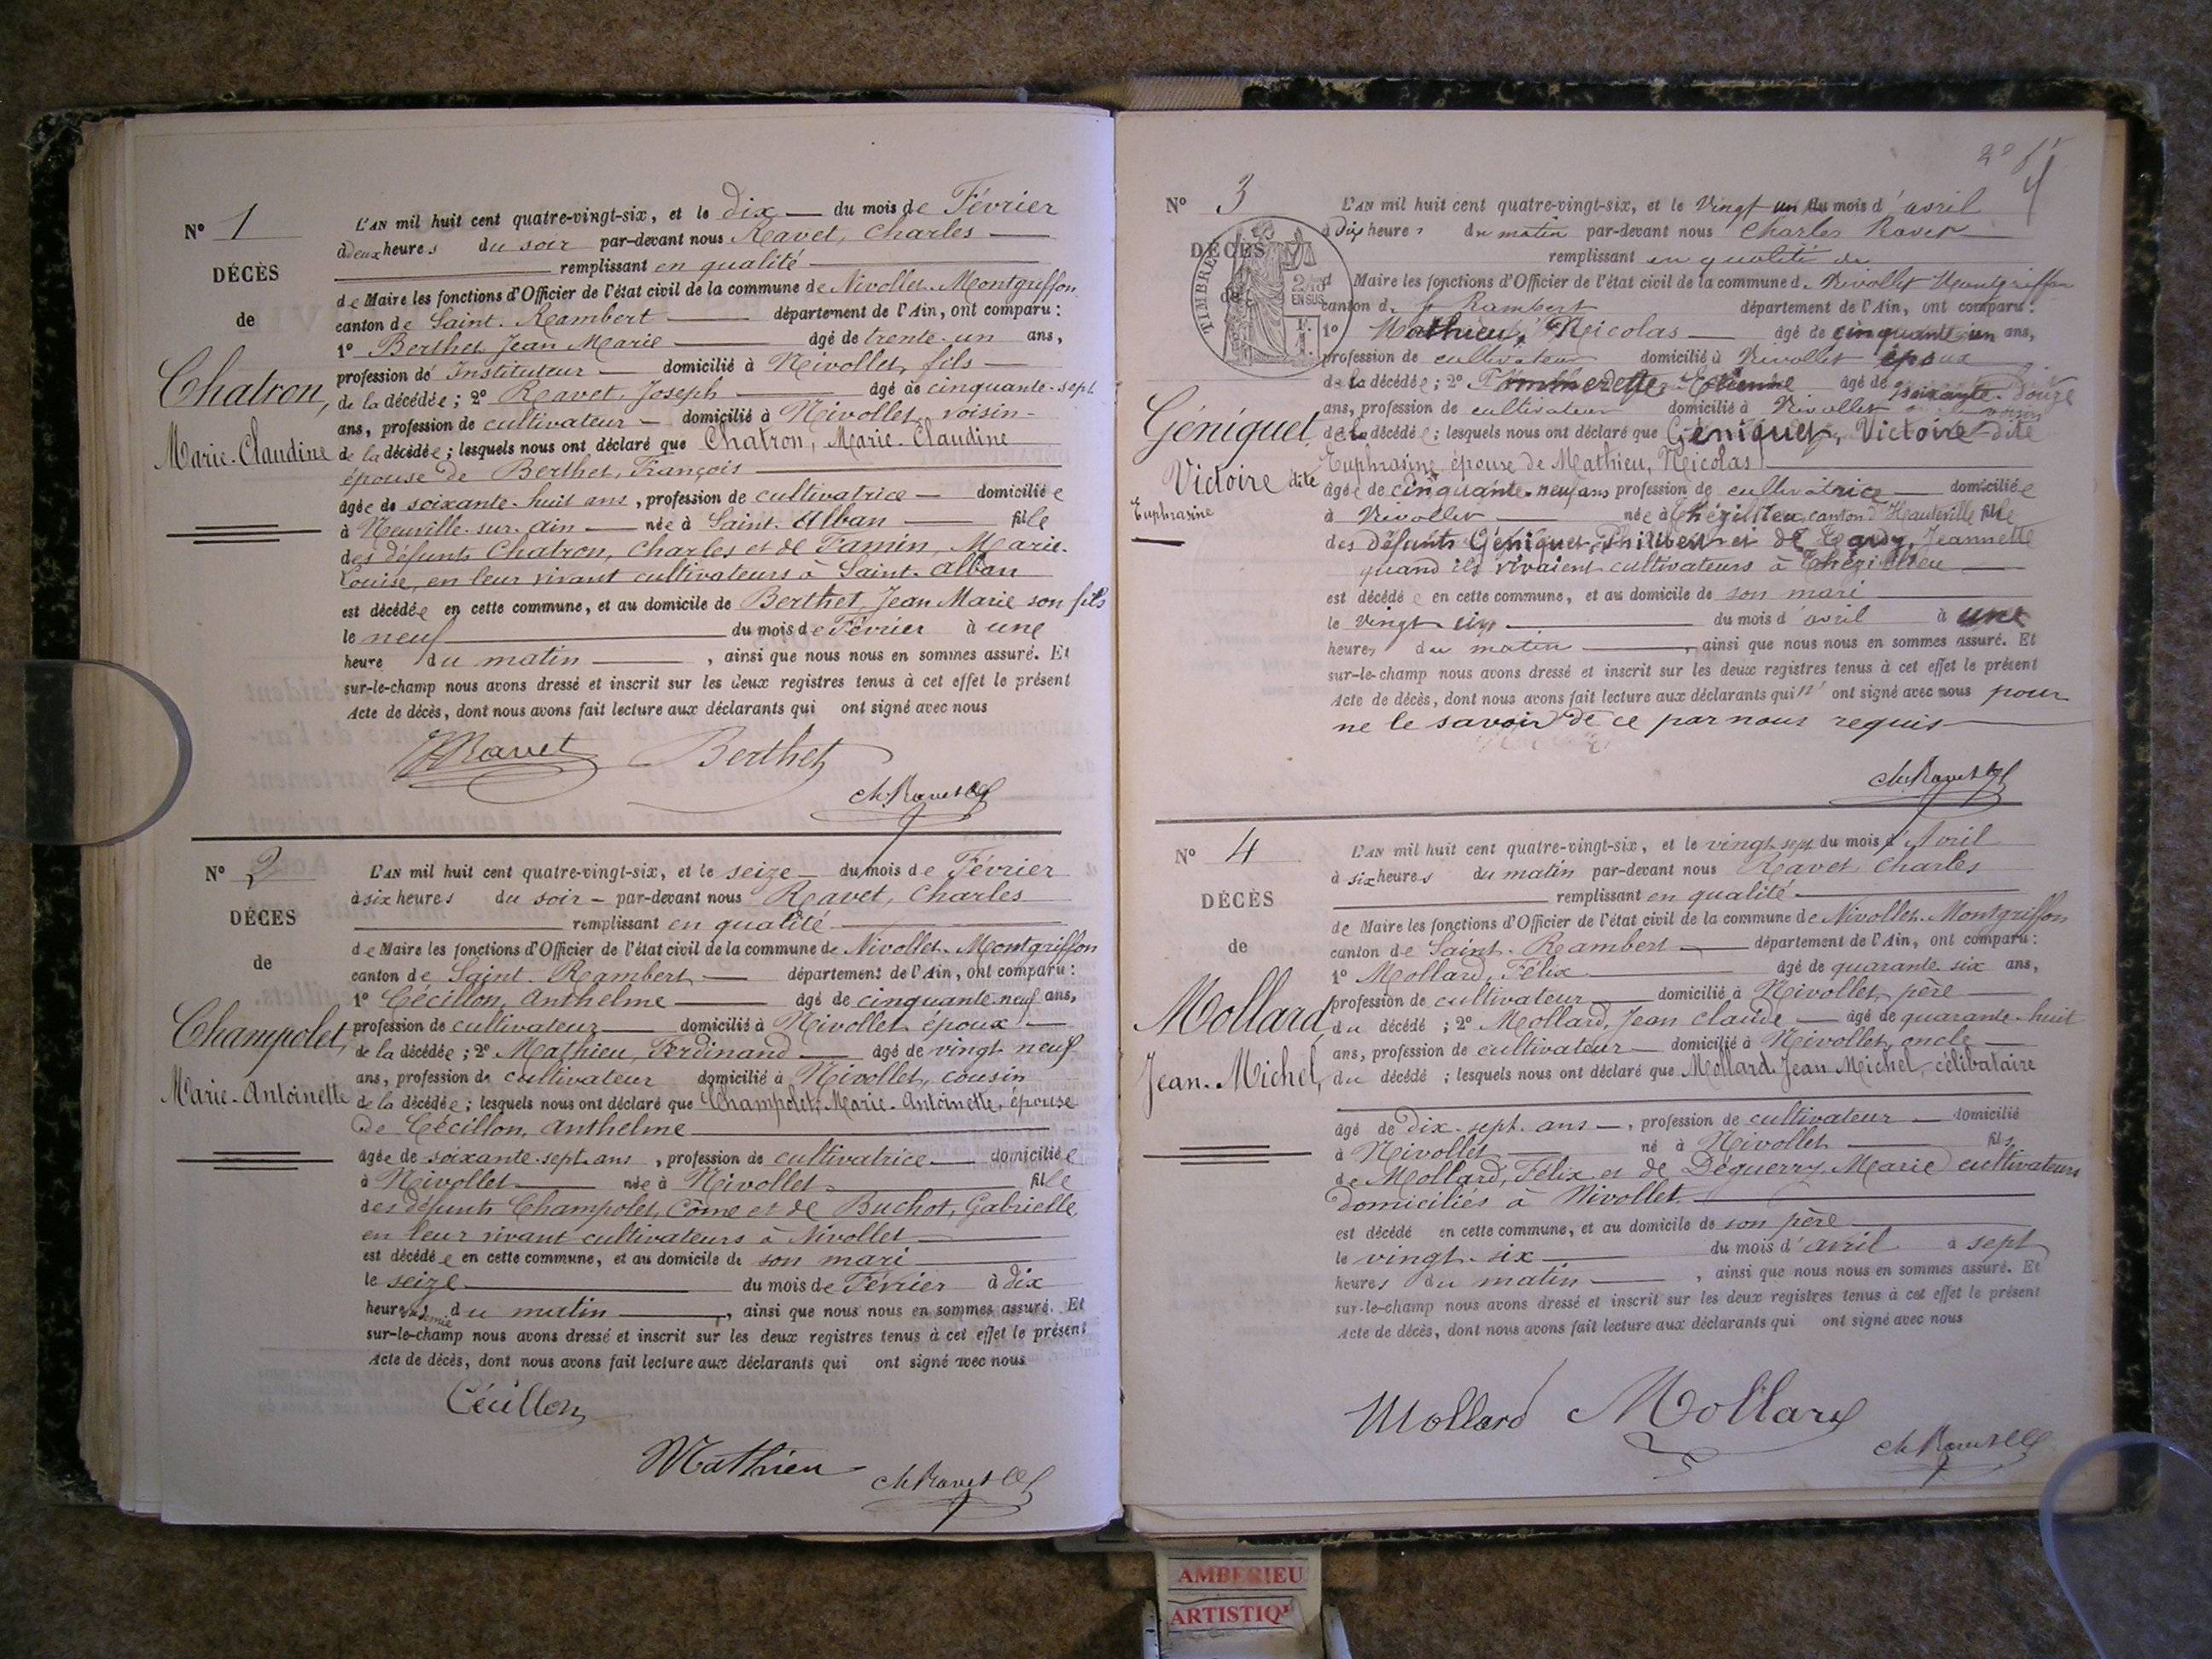 N° 1
DÉCÈS
de
Chatron,
Marie-Claudine
L'AN mil huit cent quatre-vingt-six, et le dix du mois de Février
à deux heures du soir par-devant nous Ravet, Charles
remplissant en qualité
de Maire les fonctions d'Officier de l'état civil de la commune de Nivollet-Montgriffon
canton de Saint-Rambert département de l'Ain, ont comparu :
1° Berthet Jean Marie âgé de trente-un ans,
profession de Instituteur domicilié à Nivollet, fils
de la décédée ; 2° Ravet, Joseph âgé de cinquante-sept
ans, profession de cultivateur domicilié à Nivollet, voisin
de la décédée ; lesquels nous ont déclaré que Chatron, Marie-Claudine
épouse de Berthet, François
âgée de soixante-huit ans, profession de cultivatrice domiciliée
à Neuville-sur-Ain née à Saint-Alban fille
des défunts Chatron, Charles et de Famin, Marie-
Louise, en leur vivant cultivateurs à Saint-Alban
est décédée en cette commune, et au domicile de Berthet, Jean Marie son fils
le neuf du mois de Février à une
heure du matin, ainsi que nous nous en sommes assuré. Et
sur-le-champ nous avons dressé et inscrit sur les deux registres tenus à cet effet le présent
Acte de décès, dont nous avons fait lecture aux déclarants qui ont signé avec nous
JRavet Berthet
Ch. Ravet
N° 2
DÉCÈS
de
Champolet,
Marie-Antoinette
L'AN mil huit cent quatre-vingt-six, et le seize du mois de Février
à six heures du soir par-devant nous Ravet, Charles
remplissant en qualité
de Maire les fonctions d'Officier de l'état civil de la commune de Nivollet-Montgriffon
canton de Saint-Rambert département de l'Ain, ont comparu :
1° Cécillon, Anthelme âgé de cinquante-neuf ans,
profession de cultivateur domicilié à Nivollet, époux
de la décédée ; 2° Mathieu, Ferdinand âgé de vingt neuf
ans, profession de cultivateur domicilié à Nivollet, cousin
de la décédée ; lesquels nous ont déclaré que Champolet, Marie-Antoinette, épouse
de Cécillon, Anthelme
âgée de soixante-sept ans, profession de cultivatrice domiciliée
à Nivollet née à Nivollet fille
des défunts Champolet, Côme et de Buchot, Gabrielle,
en leur vivant cultivateurs à Nivollet
est décédée en cette commune, et au domicile de son mari
le seize du mois de Février à dix
heures et demie du matin, ainsi que nous nous en sommes assuré. Et
sur-le-champ nous avons dressé et inscrit sur les deux registres tenus à cet effet le présent
Acte de décès, dont nous avons fait lecture aux déclarants qui ont signé avec nous
Cécillon
Mathieu Ch. Ravet
4
N° 3
DÉCÈS
de
TIMBRE
EN SUS
Géniquet
Victoire dite
Euphrasine
L'AN mil huit cent quatre-vingt-six, et le vingt un du mois d'avril
à dix heures du matin par-devant nous Charles Ravet
remplissant en qualité de
Maire les fonctions d'Officier de l'état civil de la commune de Nivollet Montgriffon
canton de St Rambert département de l'Ain, ont comparu :
1° Mathieu, Nicolas âgé de cinquante un ans,
profession de cultivateur domicilié à Nivollet époux
de la décédée ; 2° Etienne âgé de soixante-douze
ans, profession de cultivateur domicilié à Nivollet voisin
de la décédée ; lesquels nous ont déclaré que Géniquet, Victoire dite
Euphrasine épouse de Mathieu, Nicolas
âgée de cinquante-neuf ans profession de cultivatrice domiciliée
à Nivollet née à Thézillieu, canton d'Hauteville fille
des défunts Géniquet, Philibert et de Jeannette
quand ils vivaient cultivateurs à Thézillieu
est décédée en cette commune, et au domicile de son mari
le vingt du mois d'avril à une
heures du matin, ainsi que nous nous en sommes assuré. Et
sur-le-champ nous avons dressé et inscrit sur les deux registres tenus à cet effet le présent
Acte de décès, dont nous avons fait lecture aux déclarants qui n'ont signé avec nous pour
ne le savoir de ce par nous requis
Ch. Ravet
N° 4
DÉCÈS
de
Mollard,
Jean-Michel,
L'AN mil huit cent quatre-vingt-six, et le vingt-sept du mois d'Avril
à six heures du matin par-devant nous Ravet, Charles
remplissant en qualité
de Maire les fonctions d'Officier de l'état civil de la commune de Nivollet-Montgriffon
canton de Saint-Rambert département de l'Ain, ont comparu :
1° Mollard, Félix âgé de quarante-six ans,
profession de cultivateur domicilié à Nivollet, père
du décédé ; 2° Mollard, Jean Claude âgé de quarante-huit
ans, profession de cultivateur domicilié à Nivollet, oncle
du décédé ; lesquels nous ont déclaré que Mollard, Jean Michel, célibataire
âgé de dix-sept ans, profession de cultivateur domicilié
à Nivollet né à Nivollet fils
de Mollard, Félix et de Déguerry, Marie cultivateurs
domiciliés à Nivollet
est décédé en cette commune, et au domicile de son père
le vingt-six du mois d'avril à sept
heures du matin, ainsi que nous nous en sommes assuré. Et
sur-le-champ nous avons dressé et inscrit sur les deux registres tenus à cet effet le présent
Acte de décès, dont nous avons fait lecture aux déclarants qui ont signé avec nous
Mollard Mollard
Ch. Ravet
AMBERIEU
ARTISTIQ